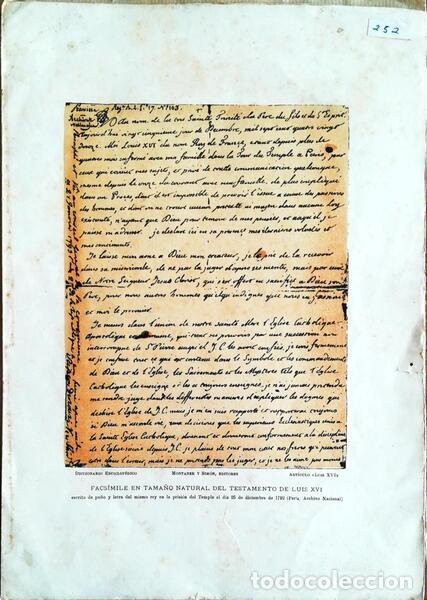 252
Au nom de la tres Sainte Trinité du Pere du Fils et du St Esprit
Aujourd'hui vingt cinquieme jour de Decembre, mil sept cent quatre vingt
douze. Moi Louis XVI du nom Roy de France, étant depuis plus de
quatre mois enfermé avec ma famille dans la Tour du Temple a Paris, par
ceux qui étaient mes sujets, et privé de toute communication quelconque,
meme depuis le onze du courant avec ma famille. de plus impliqué
dans un Procès dont il est impossible de prévoir l'issue a cause des passions
des hommes, et dont on ne trouve aucun pretexte ni moyen dans aucune loy
existante, n'ayant que Dieu pour temoin de mes pensées, et auquel je
puisse m'adresser. je declare ici en sa presence mes dernieres volontés et
mes sentiments.
Je laisse mon ame a Dieu mon createur, je le prie de la recevoir
dans sa misericorde, de ne pas la juger d'apres ses merites, mais par ceux
de Notre Seigneur Jesus Christ, qui s'est offert en sacrifice a Dieu son
Pere, pour nous autres hommes quelqu'indignes que nous en fussions
et moi le premier.
Je meurs dans l'union de notre Sainte Mere l'Eglise Catholique
Apostolique et Romaine, qui tient ses pouvoirs par une succession non
interrompue de St Pierre auquel J.C. les avait confiés, je crois fermement
et je confesse tout ce qui est contenu dans le Symbole et les commandements
de Dieu et de l'Eglise, les Sacrements et les Mysteres tels que l'Eglise
Catholique les enseigne et les a toujours enseignés, je n'ai jamais pretendu
me rendre juge dans les differentes manieres d'expliquer les dogmes qui
dechire l'Eglise de J.C. mais je m'en suis rapporté et rapporterai toujours
si Dieu m'accorde vie, aux decisions que les superieurs Ecclesiastiques unis a
la Sainte Eglise Catholique, donnent et donneront conformement a la discipline
de l'Eglise suivie depuis J.C. je plains de tout mon coeur nos freres qui peuvent
DICCIONARIO ENCICLOPÉDICO MONTANER Y SIMÓN, EDITORES ARTÍCULO «LUIS XVI»
FACSÍMILE EN TAMAÑO NATURAL DEL TESTAMENTO DE LUIS XVI
escrito de puño y letra del mismo rey en la prisión del Temple el día 25 de diciembre de 1792 (París, Archivo Nacional)
todocoleccion.net